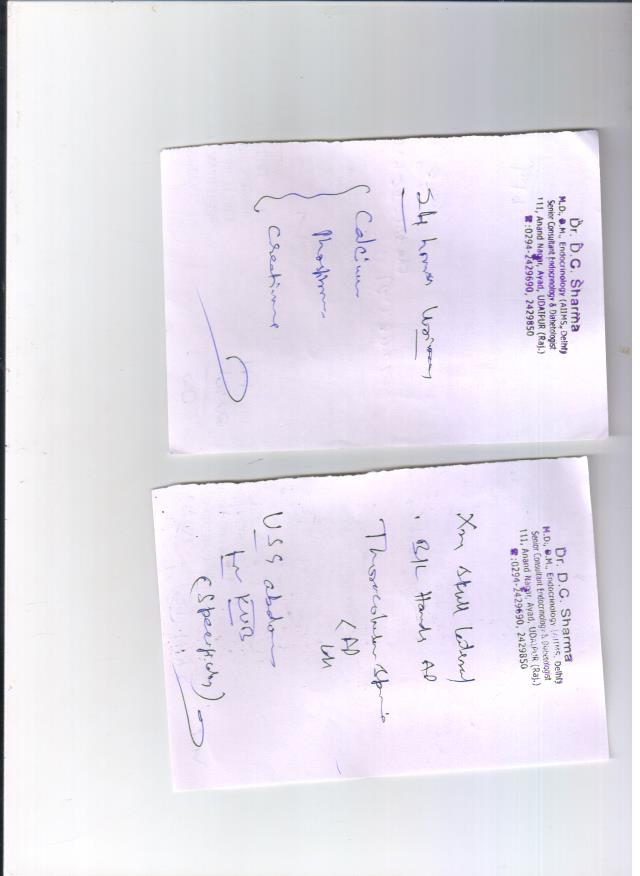 Dr. D.C. Sharma
M.D., D.M., Endocrinology (AIIMS, Delhi)
Senior Consultant Endocrinology & Diabetologist
111, Anand Nagar, Ayad, UDAIPUR (Raj.)
☎:0294-2429690, 2429850
24 hours Urinary
Calcium
Phosphorus
Creatinine
Dr. D.C. Sharma
M.D., D.M., Endocrinology (AIIMS, Delhi)
Senior Consultant Endocrinology & Diabetologist
111, Anand Nagar, Ayad, UDAIPUR (Raj.)
☎:0294-2429690, 2429850
Xray Skull Lateral
B/L Hands AP
Thoracolumbar Spine
AP
Lat
USG abdomen
for KUB
(Specifically)